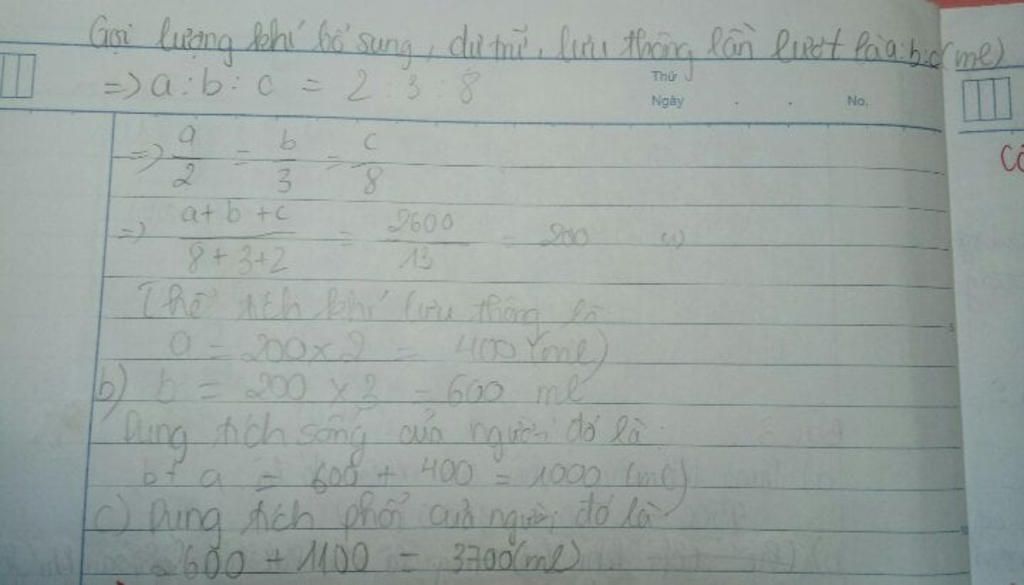 Gọi lượng khí bổ sung, dự trữ, lưu thông lần lượt là a:b:c (ml)
=> a : b : c = 2 : 3 : 8
Thứ
Ngày . . No.
=> a/2 = b/3 = c/8
=> (a+b+c)/(8+3+2) = 2600/13 = 200
Thể tích khí lưu thông là
a = 200 x 2 = 400 (ml)
b) b = 200 x 3 = 600 ml
Dung tích sống của người đó là
b + a = 600 + 400 = 1000 (ml)
c) Dung tích phổi của người đó là
2600 + 1100 = 3700 (ml)